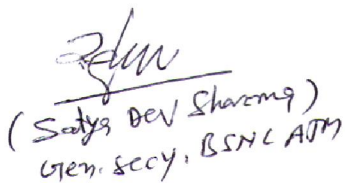 (Satya Dev Sharma)
Gen. Secy, BSNL ATM